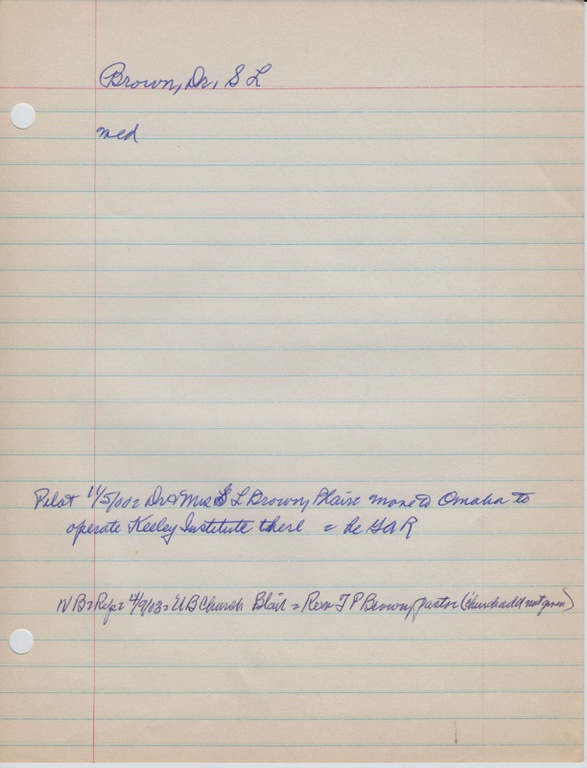 Brown, Dr, S L
med
Pilot 11/5/00= Dr & Mrs S L Brown, Blair move to Omaha to
operate Keeley Institute there = he GAR
NB= Rep= 4/9/03= UB Church Blair = Rev T P Brown, pastor (church add not given)